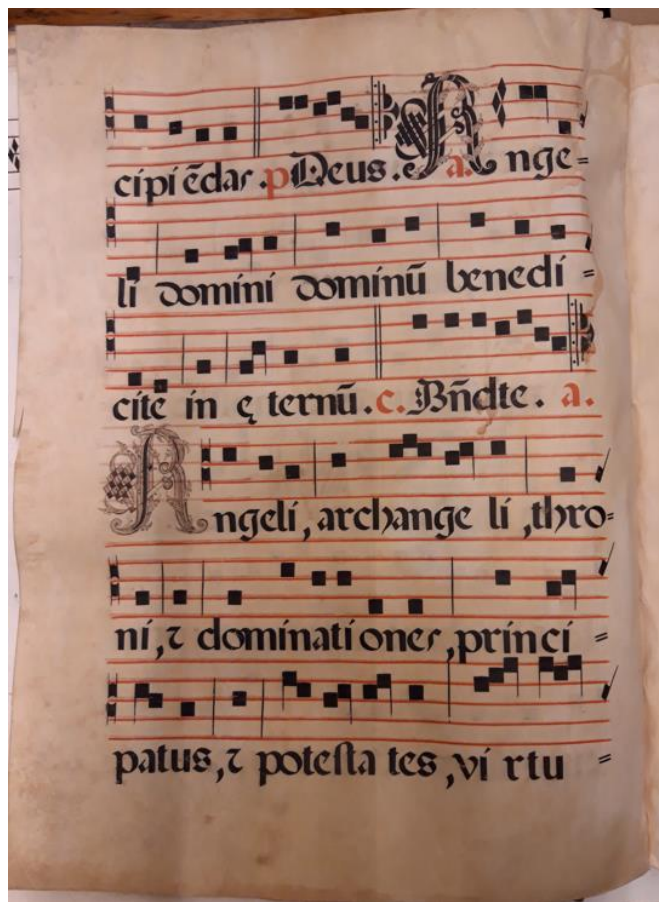 cipiēdas. p Deus. a. Ange=
li domini dominū benedi=
cite in ę ternū. c. Bñdte. a.
Angeli, archange li, thro=
ni, ⁊ dominationes, princi=
patus, ⁊ potesta tes, vi rtu=